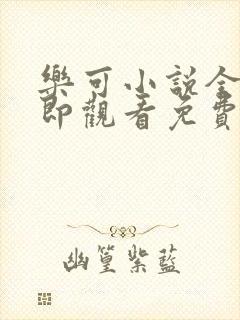 樂可小說全
即觀看免費
幽篁紫藍